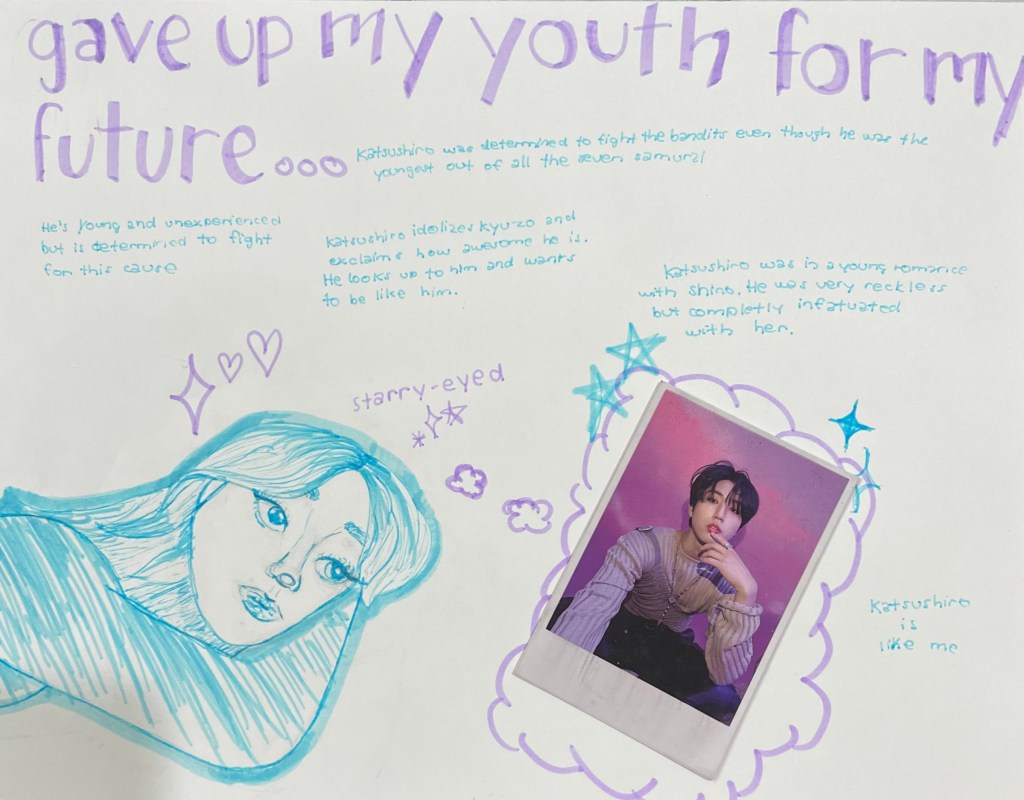 gave up my youth for my
future...
Katsushiro was determined to fight the bandits even though he was the
youngest out of all the seven samurai
He's young and unexperienced
but is determined to fight
for this cause
Katsushiro idolizes kyuzo and
exclaims how awesome he is.
He looks up to him and wants
to be like him.
Katsushiro was in a young romance
with shino. He was very reckless
but completly infatuated
with her.
starry-eyed
Katsushiro
is
like me